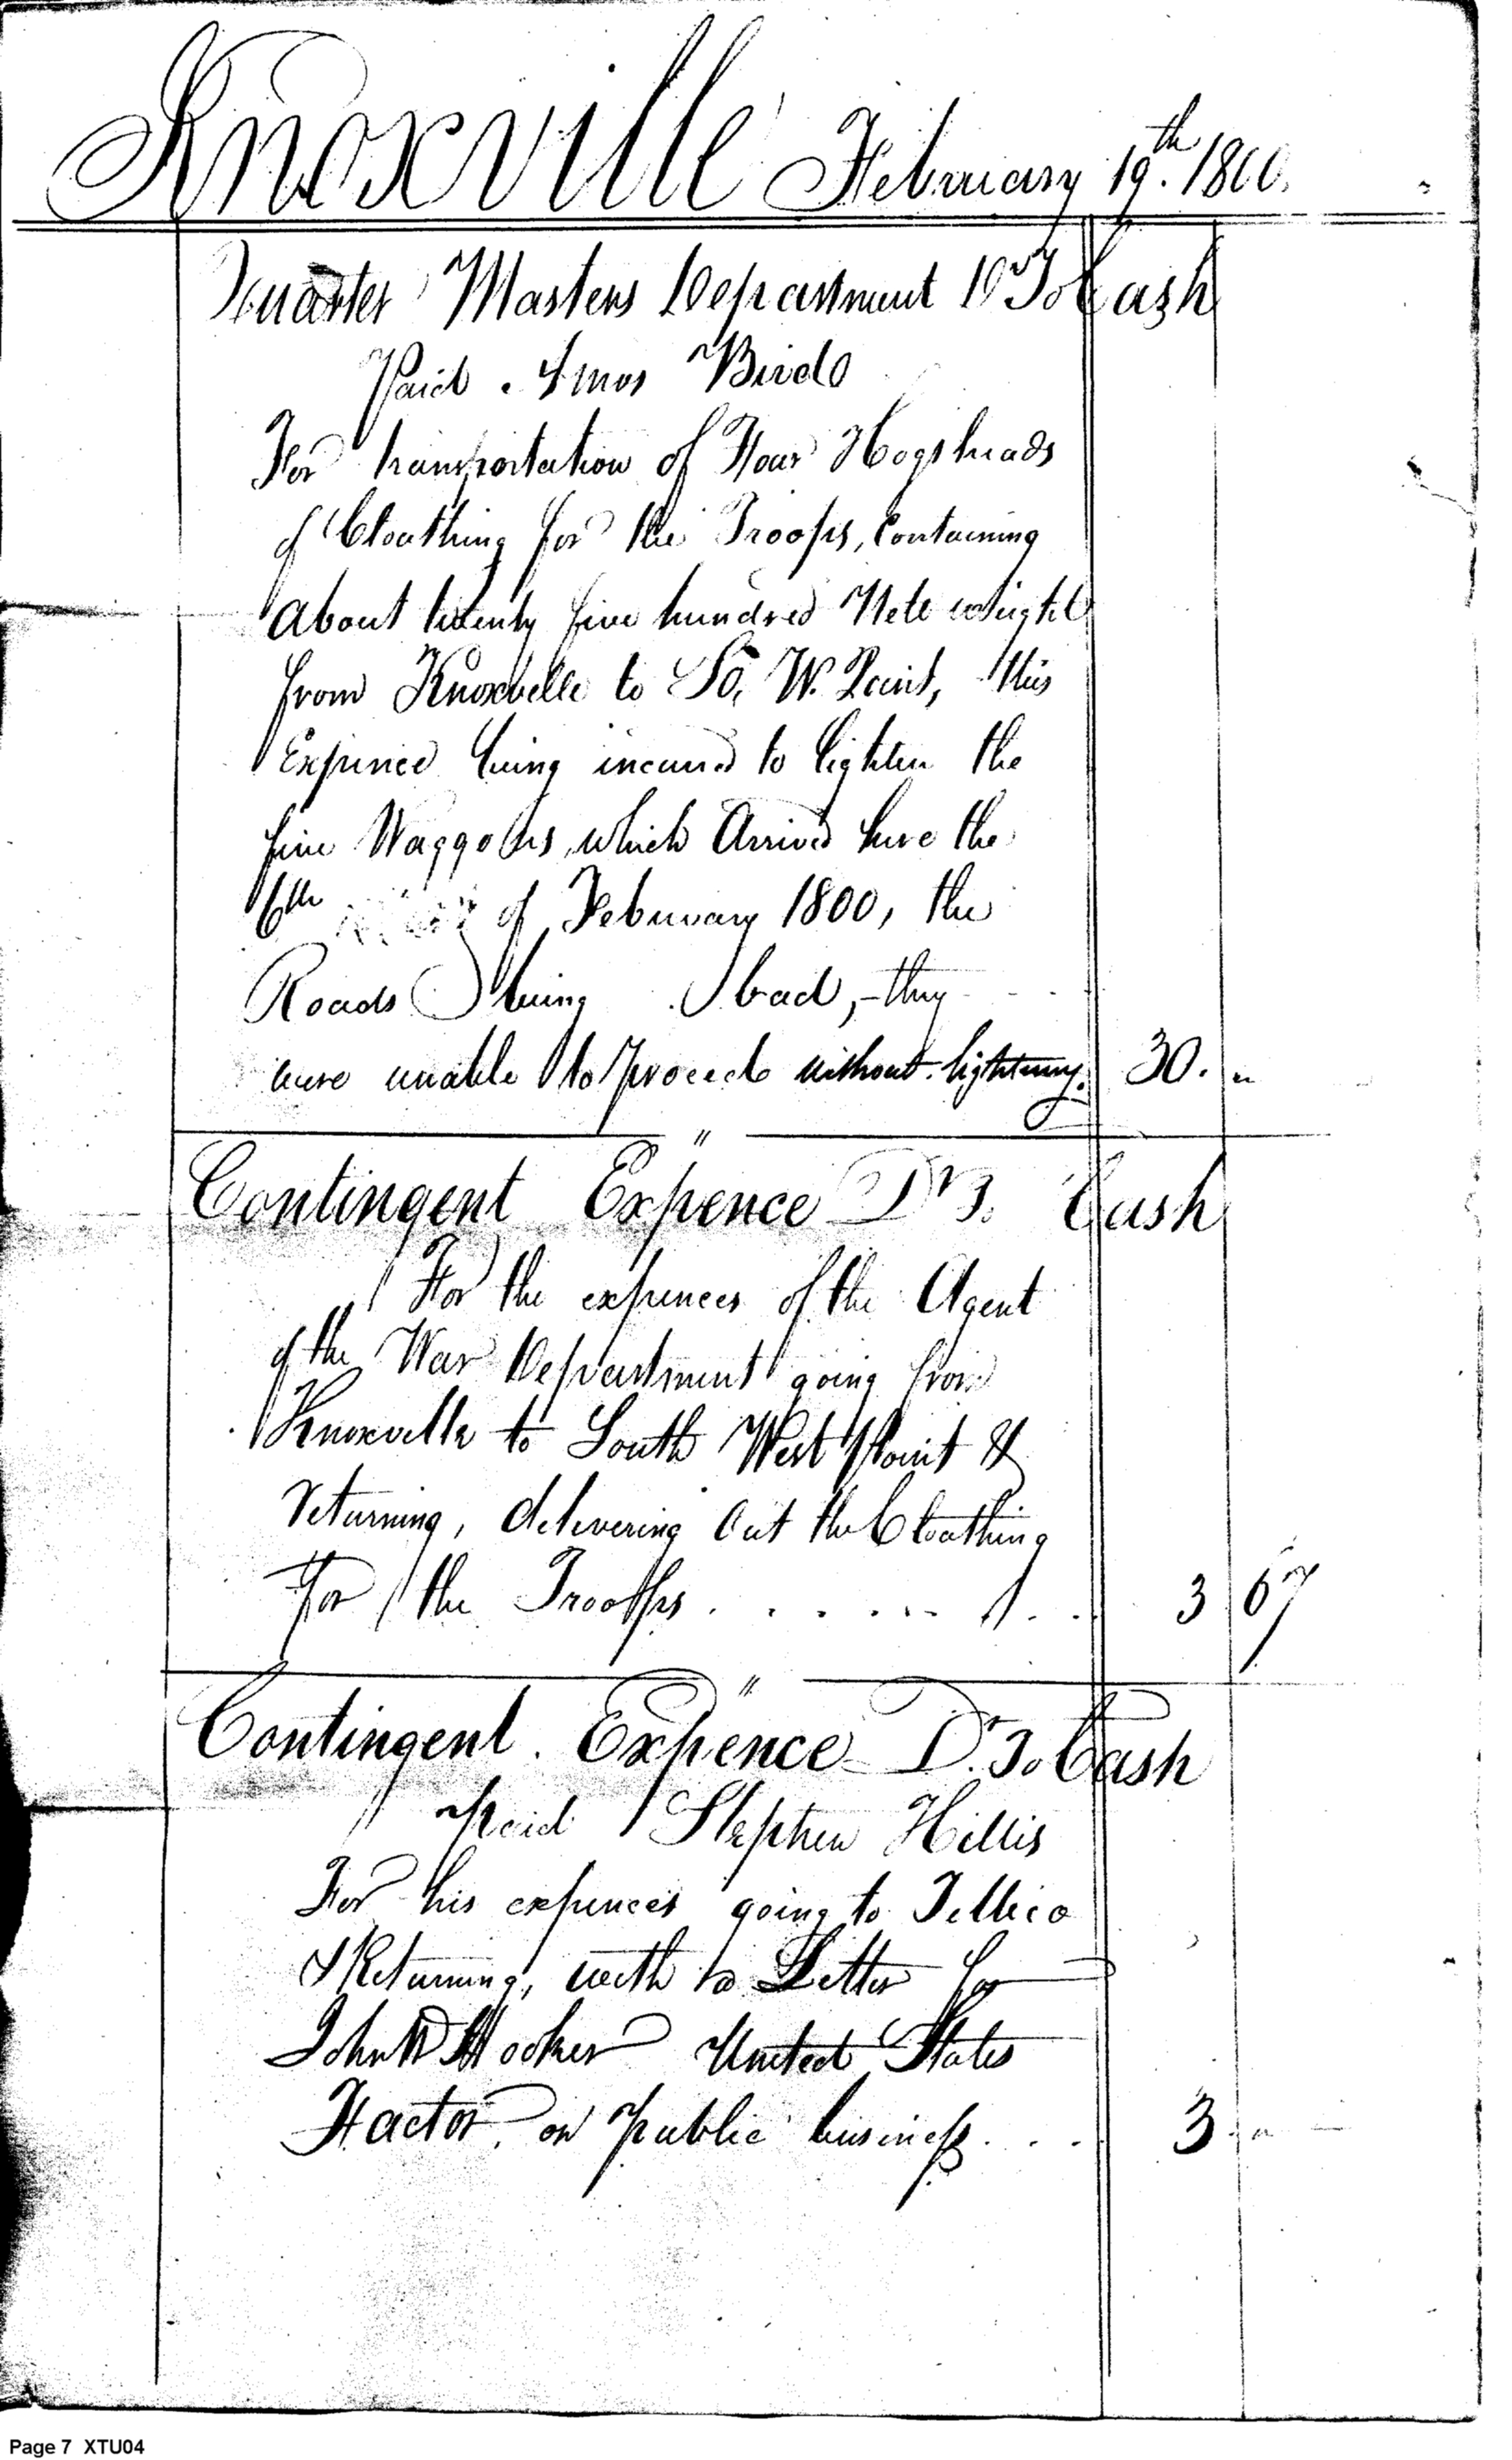 Knoxville February 19th. 1800.
Quarter Masters Department Dr To Cash
Paid Amos Bird
For transportation of Four Hogsheads
of Cloathing for the Troops, Containing
About twenty five hundred Nett weight
from Knoxville to So. W. Point, this
Expence being incured to lighten the
five Waggons which Arrived here the
6th of February 1800, the
Roads being bad, they
were unable to proceed without lightning. 30. "
"
Contingent Expence Dr To Cash
For the expences of the Agent
of the War Department going from
Knoxville to South West Point &
returning, delivering Out the Cloathing
For the Troops . . . . . . . . 3 67
"
Contingent Expence Dr To Cash
Paid Stephen Hillis
For his expences going to Tellico
& Returning, with a Letter for
John W Hooker United States
Factor, on public business . . . 3 "
Page 7 XTU04